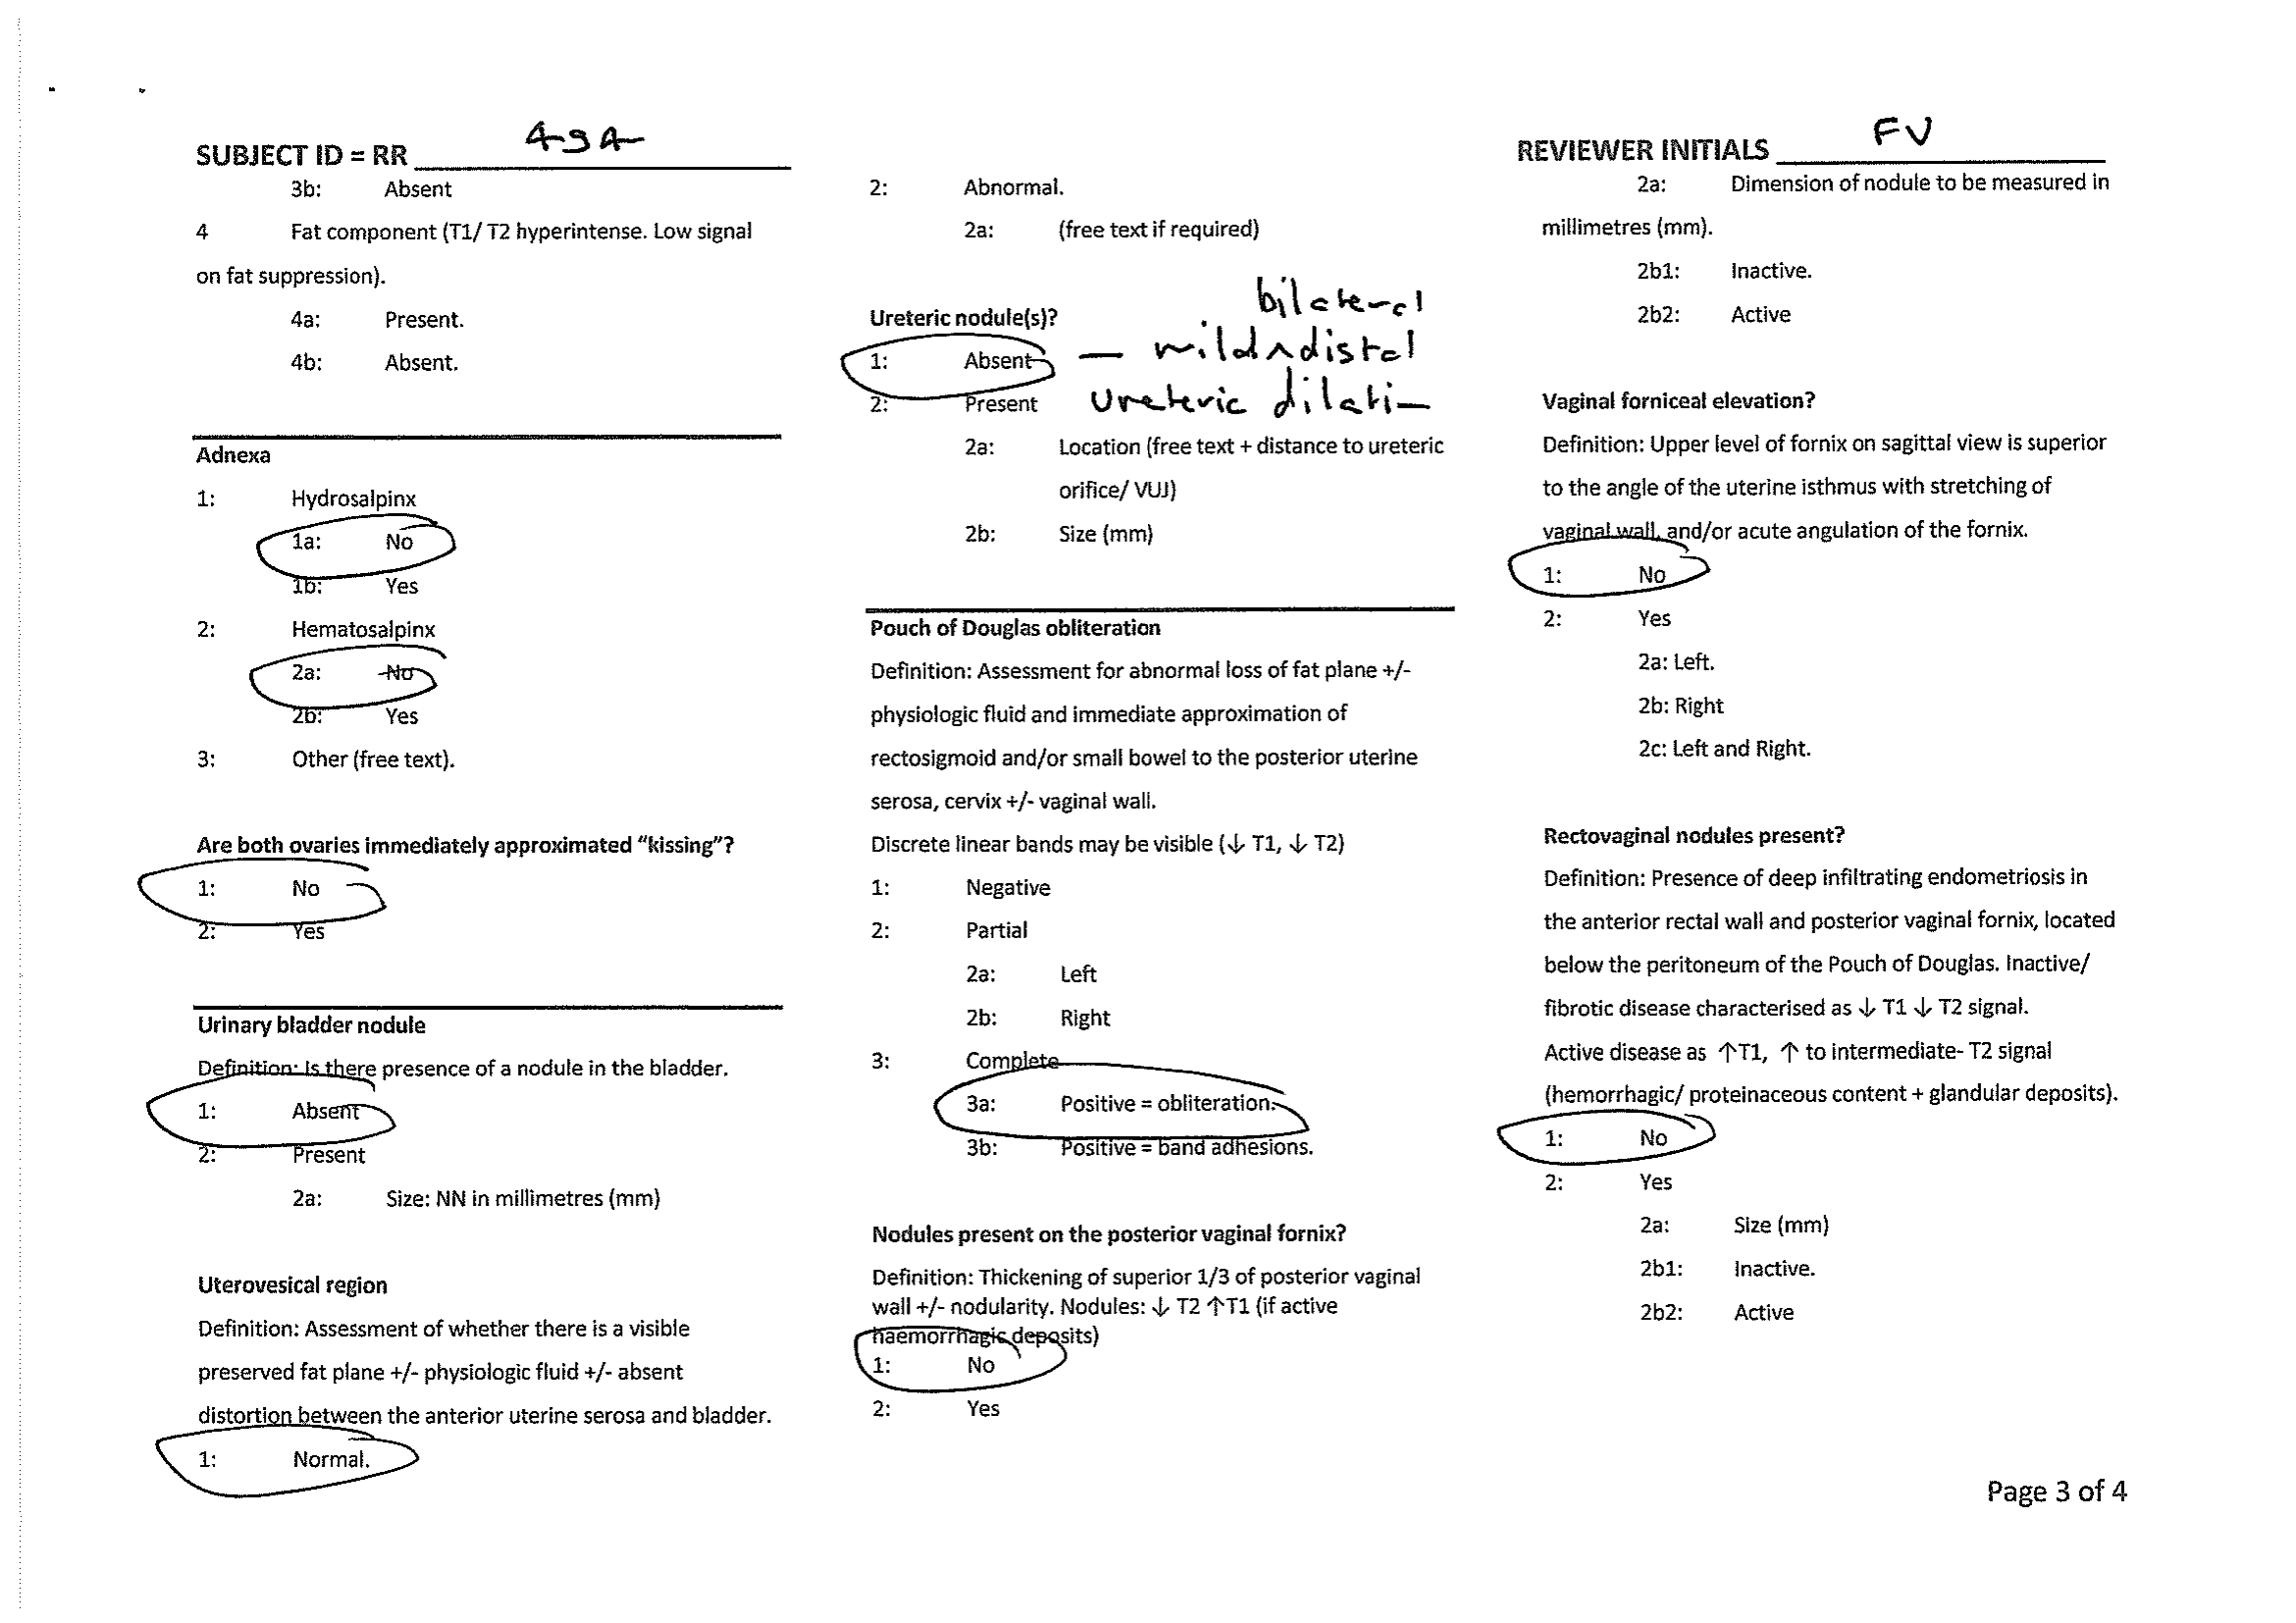 SUBJECT ID = RR 494
3b: Absent
4 Fat component (T1/ T2 hyperintense. Low signal
on fat suppression).
4a: Present.
4b: Absent.
Adnexa
1: Hydrosalpinx
1a: No
1b: Yes
2: Hematosalpinx
2a: No
2b: Yes
3: Other (free text).
Are both ovaries immediately approximated “kissing”?
1: No
2: Yes
Urinary bladder nodule
Definition: Is there presence of a nodule in the bladder.
1: Absent
2: Present
2a: Size: NN in millimetres (mm)
Uterovesical region
Definition: Assessment of whether there is a visible
preserved fat plane +/- physiologic fluid +/- absent
distortion between the anterior uterine serosa and bladder.
1: Normal.
2: Abnormal.
2a: (free text if required)
Ureteric nodule(s)?
bilateral
1: Absent — mild ^ distal
2: Present ureteric dilati—
2a: Location (free text + distance to ureteric
orifice/ VUJ)
2b: Size (mm)
Pouch of Douglas obliteration
Definition: Assessment for abnormal loss of fat plane +/-
physiologic fluid and immediate approximation of
rectosigmoid and/or small bowel to the posterior uterine
serosa, cervix +/- vaginal wall.
Discrete linear bands may be visible (↓ T1, ↓ T2)
1: Negative
2: Partial
2a: Left
2b: Right
3: Complete
3a: Positive = obliteration.
3b: Positive = band adhesions.
Nodules present on the posterior vaginal fornix?
Definition: Thickening of superior 1/3 of posterior vaginal
wall +/- nodularity. Nodules: ↓ T2 ↑T1 (if active
haemorrhagic deposits)
1: No
2: Yes
REVIEWER INITIALS FV
2a: Dimension of nodule to be measured in
millimetres (mm).
2b1: Inactive.
2b2: Active
Vaginal forniceal elevation?
Definition: Upper level of fornix on sagittal view is superior
to the angle of the uterine isthmus with stretching of
vaginal wall, and/or acute angulation of the fornix.
1: No
2: Yes
2a: Left.
2b: Right
2c: Left and Right.
Rectovaginal nodules present?
Definition: Presence of deep infiltrating endometriosis in
the anterior rectal wall and posterior vaginal fornix, located
below the peritoneum of the Pouch of Douglas. Inactive/
fibrotic disease characterised as ↓ T1 ↓ T2 signal.
Active disease as ↑T1, ↑ to intermediate- T2 signal
(hemorrhagic/ proteinaceous content + glandular deposits).
1: No
2: Yes
2a: Size (mm)
2b1: Inactive.
2b2: Active
Page 3 of 4